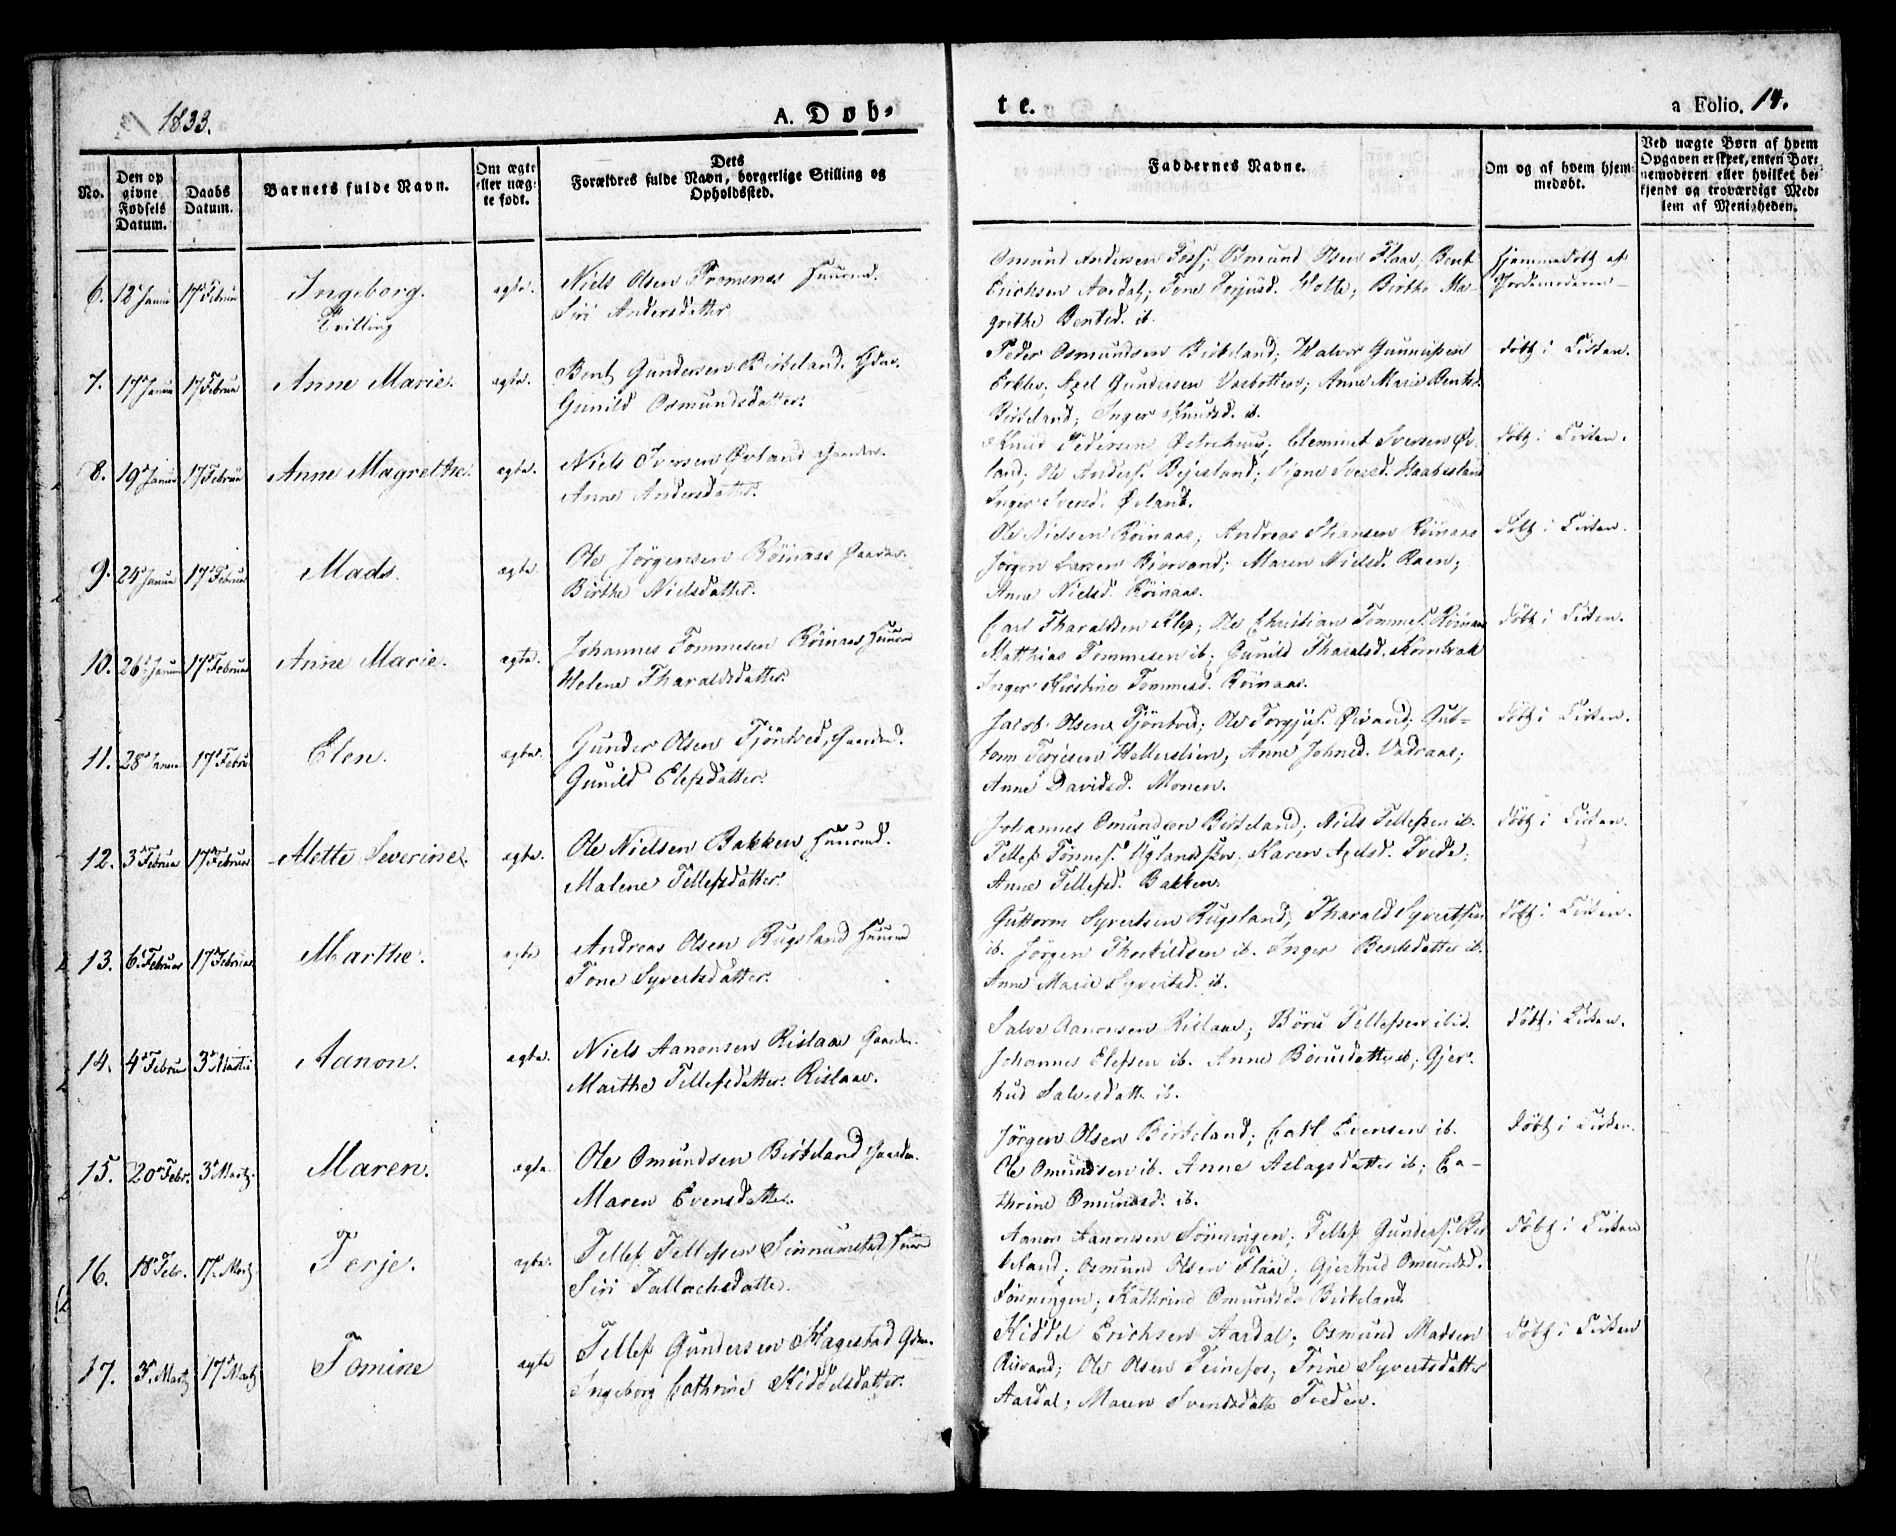 1833.
A. Døb-
te.
a Folio. 14.
No.
Den op
givne
Fødsels
Datum.
Daabs
Datum.
Barnets fulde Navn.
Om ægte
eller uæg-
te født.
Dets
Forældres fulde Navn, borgerlige Stilling og
Opholdssted.
Faddernes Navne.
Om og af hvem hjem-
medøbt.
Ved uægte Børn af hvem
Opgaven er skeet, enten Bar-
nemoderen eller hvilket be-
kjendt og troværdigt Med-
lem af Menigheden.
6. 17 Februar Ingeborg. ægte. Niels Olsen Huusmd.
Tvilling
Siri Andersdatter
Osmund Andersen Foss; Osmund Olsen Flaa; Bent
Erichsen Aardal; Tone Holte; Birthe Ma-
grethe Bentsd. ib.
Hjemmedøbt af
Jordemoderen
7. 17 Januar 17 Februar Anne Marie. ægte. Bent Gundersen Birkeland. Gdm.
Gunild Osmundsdatter.
Peder Osmundsen Birkeland; Halvor Gunnufsen
Axel Gundersen; Anne Marie Bentsd.
Birkeland; Inger Knudsd. ib.
døbt i Kirken.
8. 19 Januar 17 Februar Anne Magrethe. ægte. Niels Iversen Øvland Gaardm.
Anne Andersdatter.
Knud Pedersen Østrehuus; Clemmet Iversen Øv-
land; Ole Anders. Signe Iversd.
Inger Iversd. Øvland.
døbt i Kirken.
9. 17 Februar Mads. ægte. Ole Jörgensen Röinaas Gaardm.
Birthe Nielsdatter.
Ole Nielsen Röinaas; Andreas Hansen Röinaas
Jörgen Larsen Maren Nielsd. Raen;
Anne Nielsd. Röinaas.
Døbt i Kirken.
10. 26 Januar 17 Februar Anne Marie. ægte. Johannes Tommesen Röinaas, Huusmd
Helene Tharaldsdatter
Carl Tharaldsen; Ole Christian Tommes. Röinaas
Matthias Tommesen ib; Gunild Tharaldsd.
Inger Kirstine Tommesd. Röinaas.
døbt i Kirken.
11. 28 Januar 17 Februar Elen. ægte. Gunder Olsen Tjöntved, Gaardm.
Gunild Elefsdatter.
Jacob Olsen Tjöntved; Ole Torgjus. Gut-
torm Terjesen; Anne Johnsd. Vadraas;
Anne Davidsd. Monen.
døbt i Kirken.
12. 3 Februar 17 Februar Alette Severine. ægte. Ole Nielsen Bakken Huusmd.
Malene Tellefsdatter.
Johannes Omundsen Birkeland; Niels Tellefsen ib.
Tellef Tönnes. Uglandskov; Karen Axelsd. Tvede;
Anne Tellefsd. Bakken
døbt i Kirken.
13. 6 Februar 17 Februar Marthe. ægte Andreas Olsen Rugsland Huusmd
Tone Syvertsdatter.
Guttorm Syvertsen Rugsland; Tharald Syvertsen
ib. Jörgen Thorkildsen ib. Inger Bentsdatter ib.
Anne Marie Syvertsd. ib.
døbt i Kirken.
14. 4 Februar 3 Martii Aanon. ægte. Niels Aanonsen Rislaae Gaardm.
Marthe Tellefsdatter Rislaae.
Salve Aanonsen Rislaae; Böru Tellefsen ibid.
Johannes Elefsen ib. Anne Böruesdatter ib; Gjer-
trud Salvesdatter ib.
døbt i Kirken.
15. 20 Febr. 3 Martz. Maren. ægte. Ole Omundsen Birkeland Gaardm.
Maren Evensdatter.
Jörgen Olsen Birkeland; Carl Evensen ib.
Ole Omundsen ib. Anne Aslagsdatter ib; Ca-
thrine Omundsd. ib.
døbt i Kirken.
16. 18 Febr. 17. Martz Terje. ægte. Tellef Tellefsen Huusmd
Siri Tallachsdatter.
Aanon Aanonsen Sönningen; Tellef Gunders. Bir-
keland; Osmund Olsen Flaae; Gjertrud Omundsd.
Sönningen; Kathrine Omundsd. Birkeland.
døbt i Kirken
17. 3. Martz 17 Martz Tomine ægte Tellef Gundersen Hagestad Gdm.
Ingeborg Cathrine Kiddelsdatter.
Kiddel Erichsen Aardal; Osmund Madsen
Ole Olsen; Trine Syvertsdatter
Aardal; Maren Svendsdatter Tveden.
døbt i Kirken